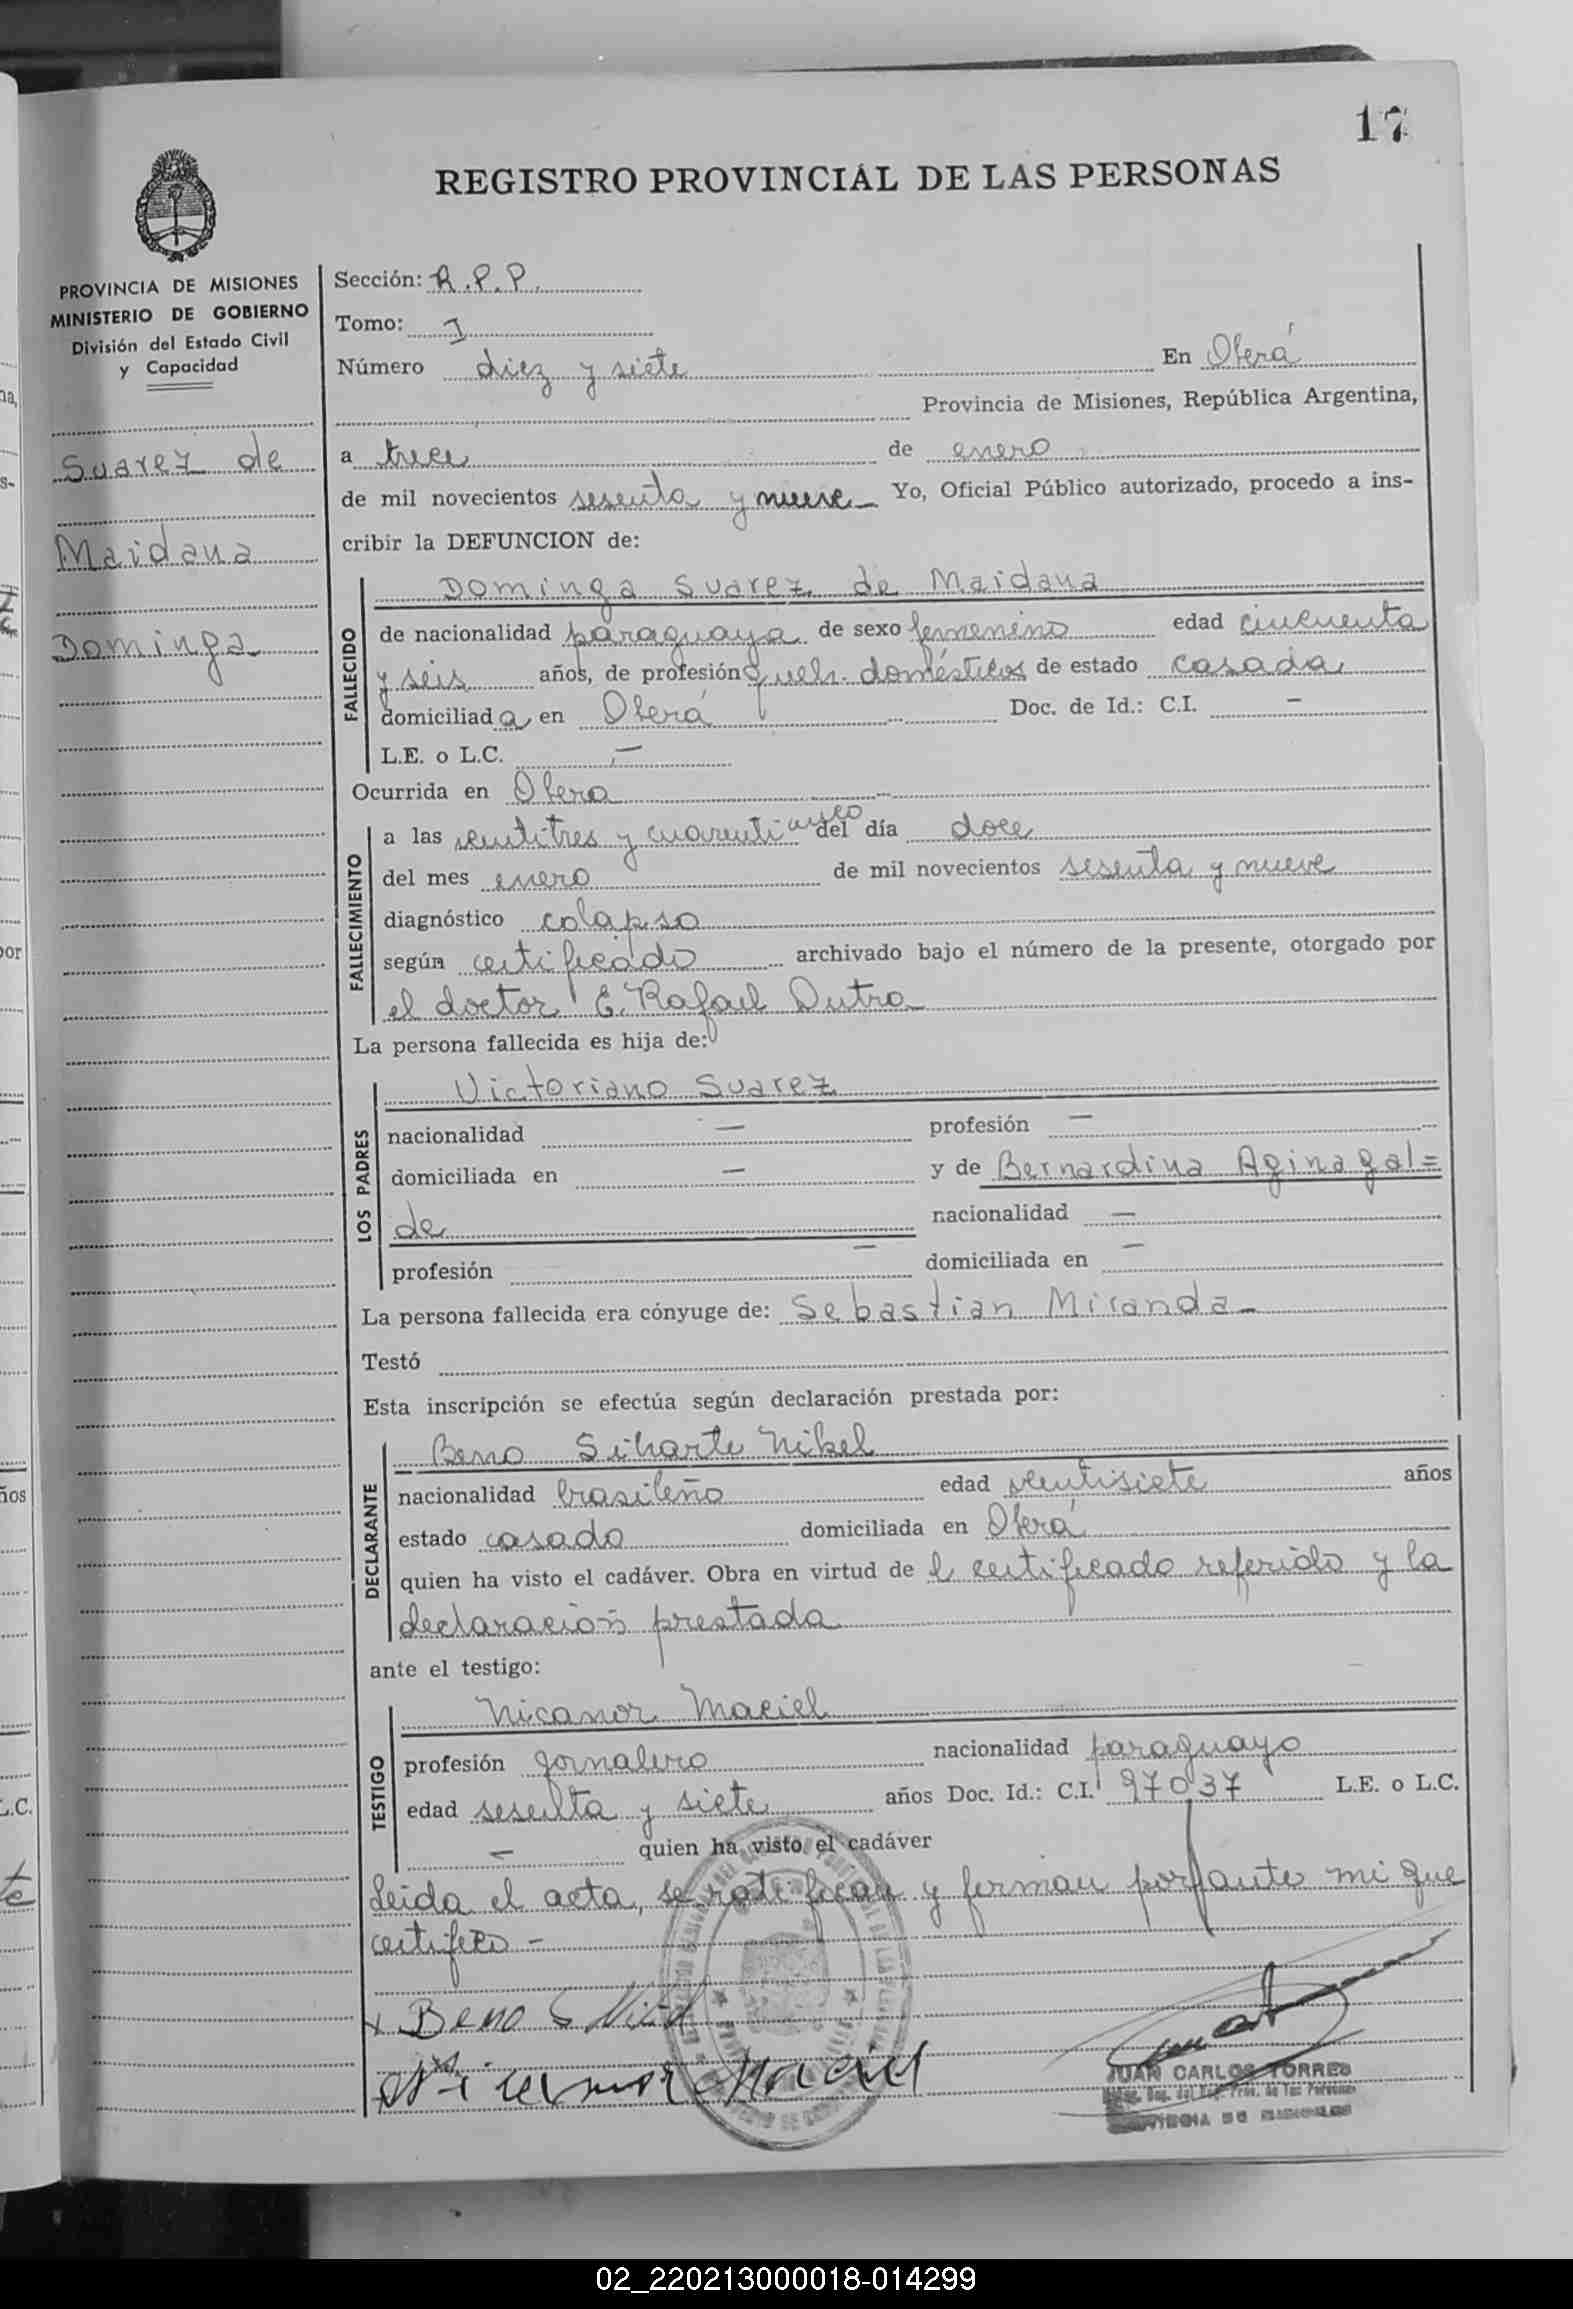 17
REGISTRO PROVINCIAL DE LAS PERSONAS
PROVINCIA DE MISIONES
MINISTERIO DE GOBIERNO
División del Estado Civil
y Capacidad
Suarez de
Maidana
Dominga
Sección: R.P.P.
Tomo: I
Número diez y siete En Oberá
Provincia de Misiones, República Argentina,
a trece de enero
de mil novecientos sesenta y nueve Yo, Oficial Público autorizado, procedo a ins-
cribir la DEFUNCION de:
FALLECIDO
Dominga Suarez de Maidana
de nacionalidad paraguaya de sexo femenino edad cincuenta
y seis años, de profesión queh. domésticos de estado casada
domiciliada en Oberá Doc. de Id.: C.I. —
L.E. o L.C. —
Ocurrida en Oberá
FALLECIMIENTO
a las veintitres y cuarenticinco del día doce
del mes enero de mil novecientos sesenta y nueve
diagnóstico colapso
según certificado archivado bajo el número de la presente, otorgado por
el doctor E. Rafael Dutra
La persona fallecida es hija de:
LOS PADRES
Victoriano Suarez
nacionalidad — profesión —
domiciliada en — y de Bernardina Aginagal=
de nacionalidad —
profesión — domiciliada en —
La persona fallecida era cónyuge de: Sebastian Miranda-
Testó
Esta inscripción se efectúa según declaración prestada por:
DECLARANTE
Beno Siharte Nikel
nacionalidad brasileño edad veintisiete años
estado casado domiciliada en Oberá
quien ha visto el cadáver. Obra en virtud de l certificado referido y la
declaración prestada
ante el testigo:
TESTIGO
Nicanor Maciel
profesión jornalero nacionalidad paraguayo
edad sesenta y siete años Doc. Id.: C.I. 97037 L.E. o L.C.
— quien ha visto el cadáver
Leida el acta, se ratifican y firman por ante mi que
certifico -
x Beno S
Nicanor Maciel
JUAN CARLOS TORRES
02_220213000018-014299